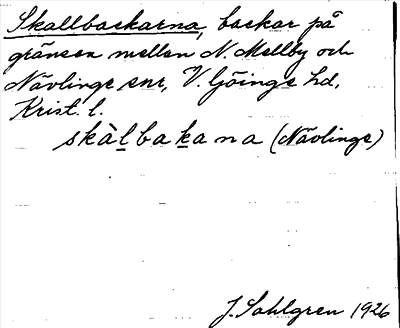 Skallbackarna, backar på
gränsen mellan N. Mellby och
Nävlinge snr, V. Göinge hd,
Krist. l.
skàlbakana (Nävlinge)
J. Sahlgren 1926